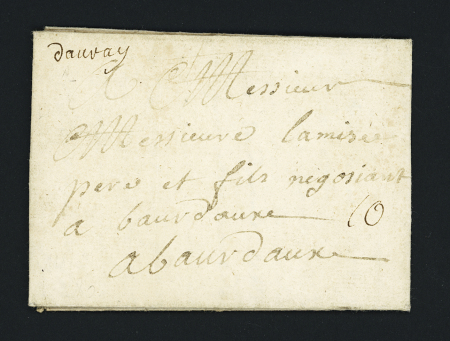 dauray
A Messieur
Messieure lamise
pere et fils negosiant
a baurdauxe 10
abaurdauxe